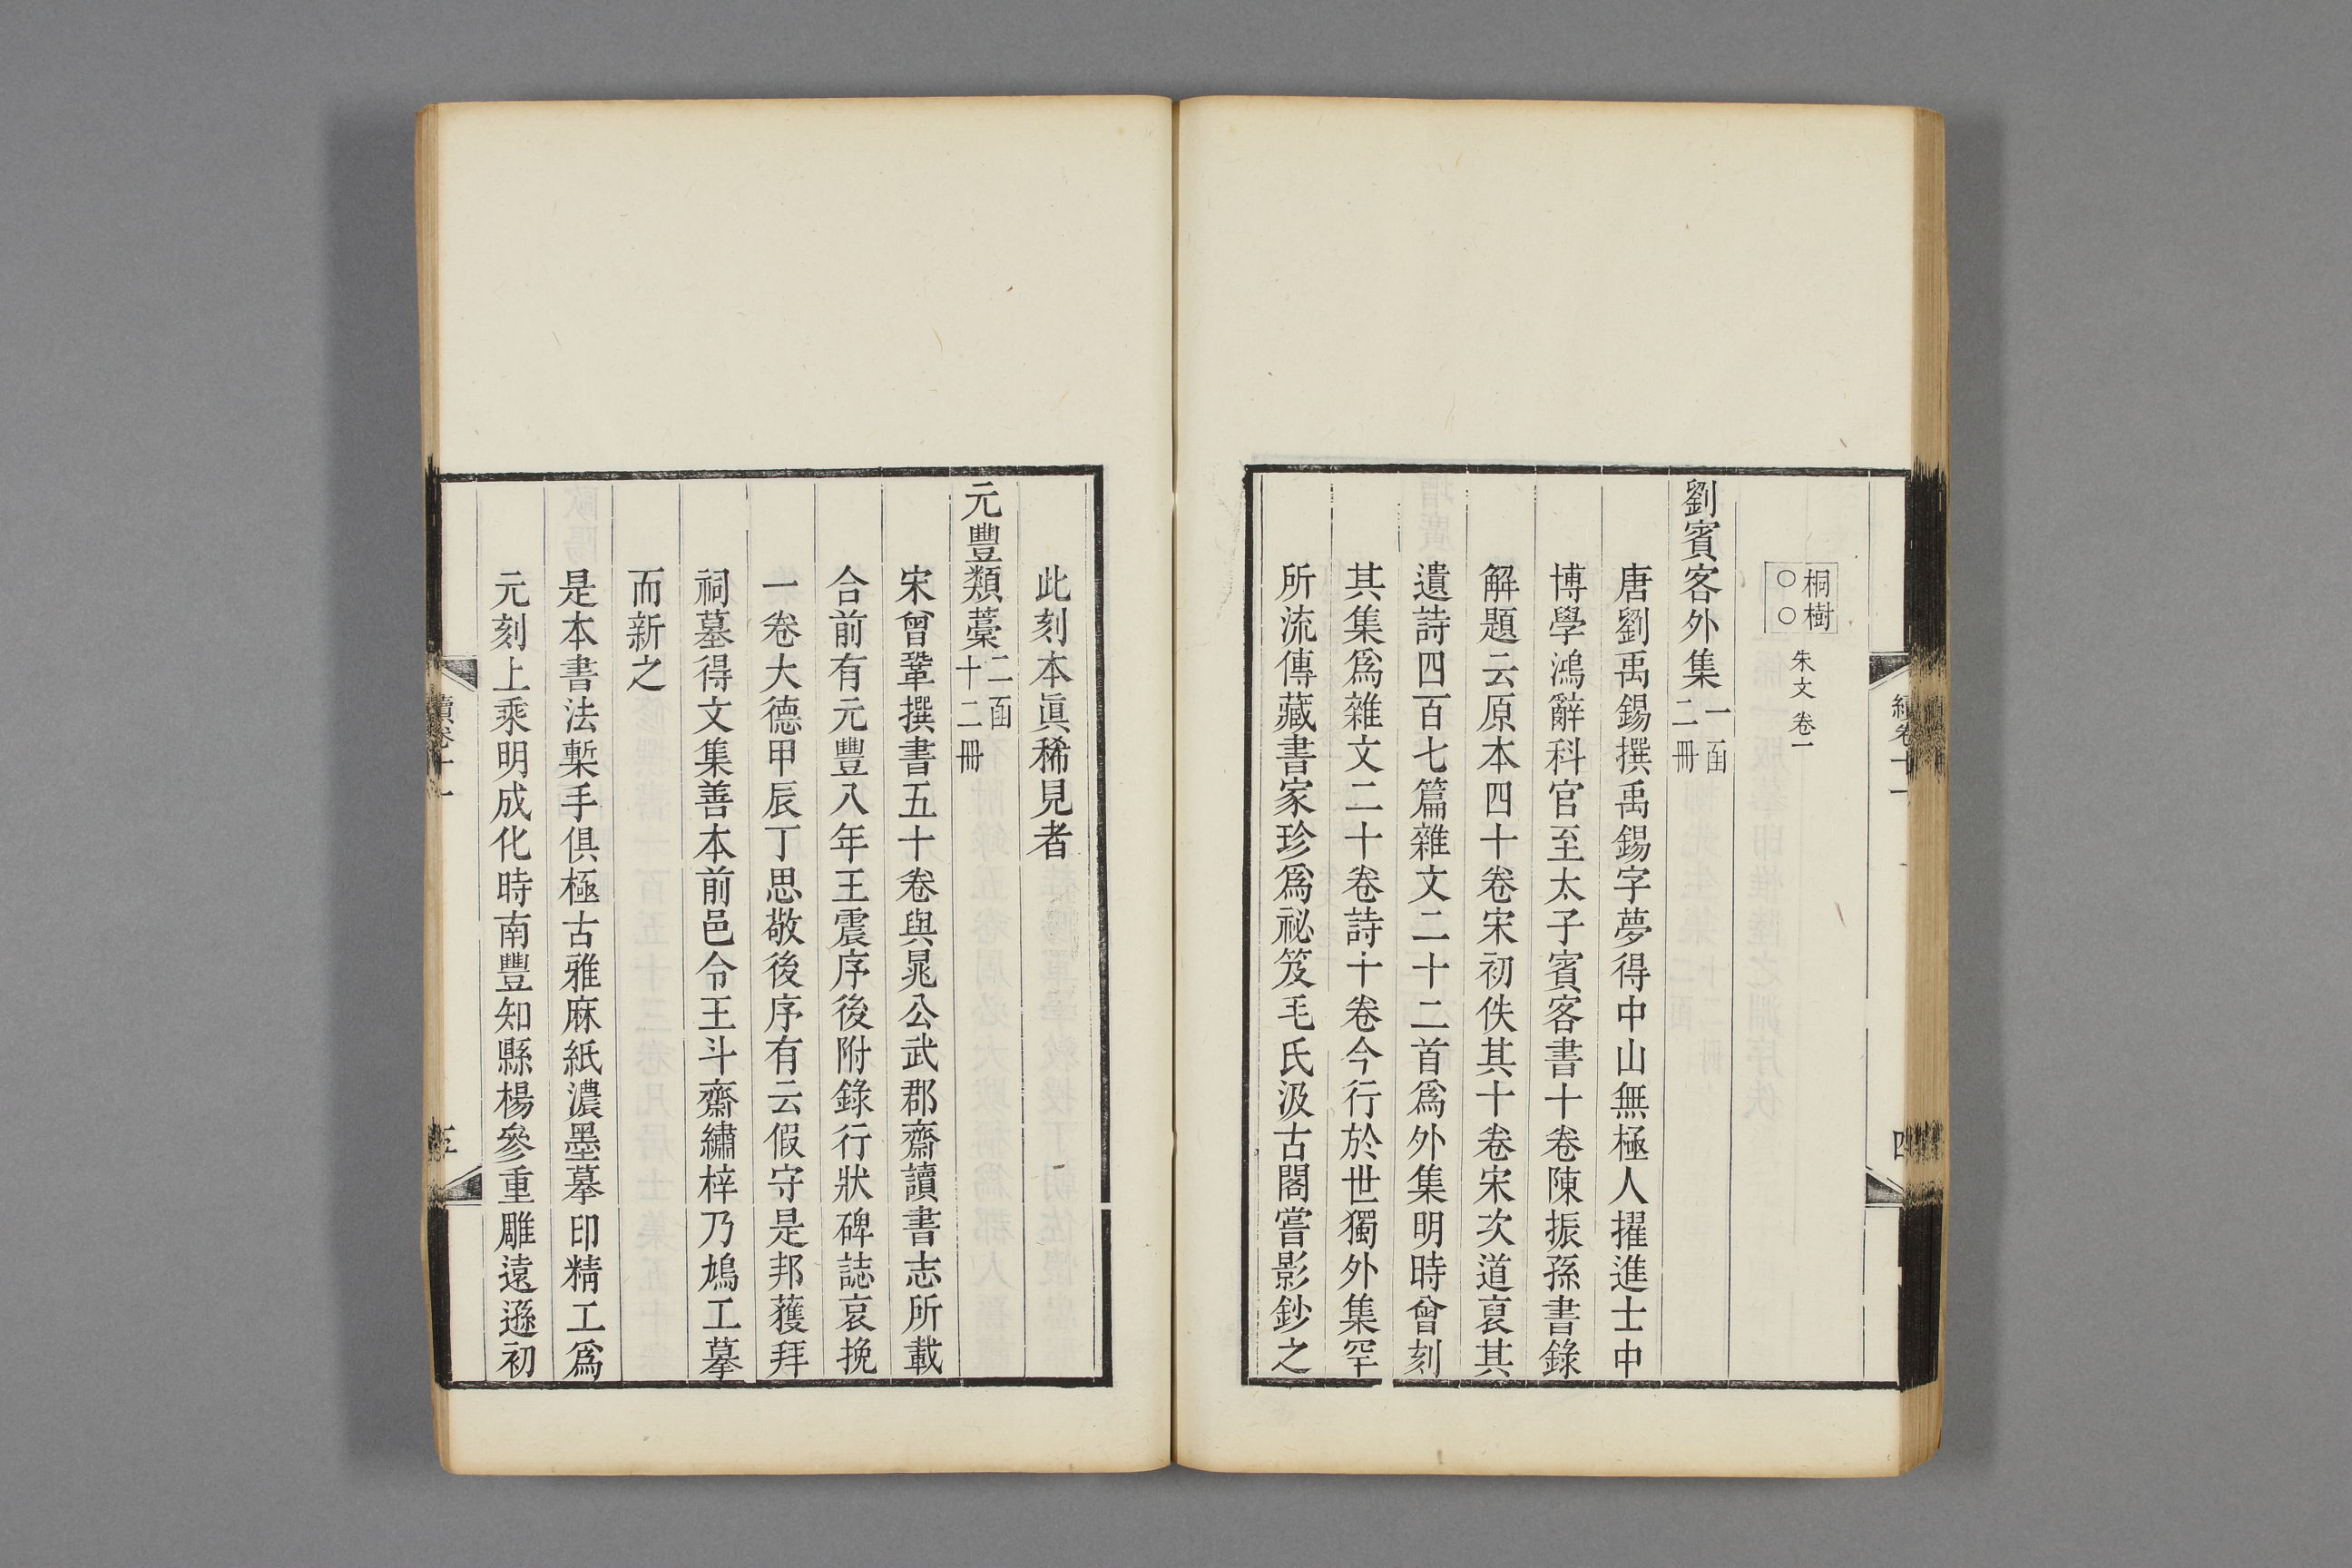 桐樹
○○
朱文 卷一
劉賓客外集 一函二冊
唐劉禹錫撰禹錫字夢得中山無極人擢進士中
博學鴻辭科官至太子賓客書十卷陳振孫書錄
解題云原本四十卷宋初佚其十卷宋次道裒其
遺詩四百七篇雜文二十二首爲外集明時曾刻
其集爲雜文二十卷詩十卷今行於世獨外集罕
所流傳藏書家珍爲祕笈毛氏汲古閣嘗影鈔之
此刻本眞稀見者
元豐類藁 二函十二冊
宋曾鞏撰書五十卷與晁公武郡齋讀書志所載
合前有元豐八年王震序後附錄行狀碑誌哀挽
一卷大德甲辰丁思敬後序有云假守是邦獲拜
祠墓得文集善本前邑令王斗齋繡梓乃鳩工摹
而新之
是本書法槧手俱極古雅麻紙濃墨摹印精工爲
元刻上乘明成化時南豐知縣楊參重雕遠遜初